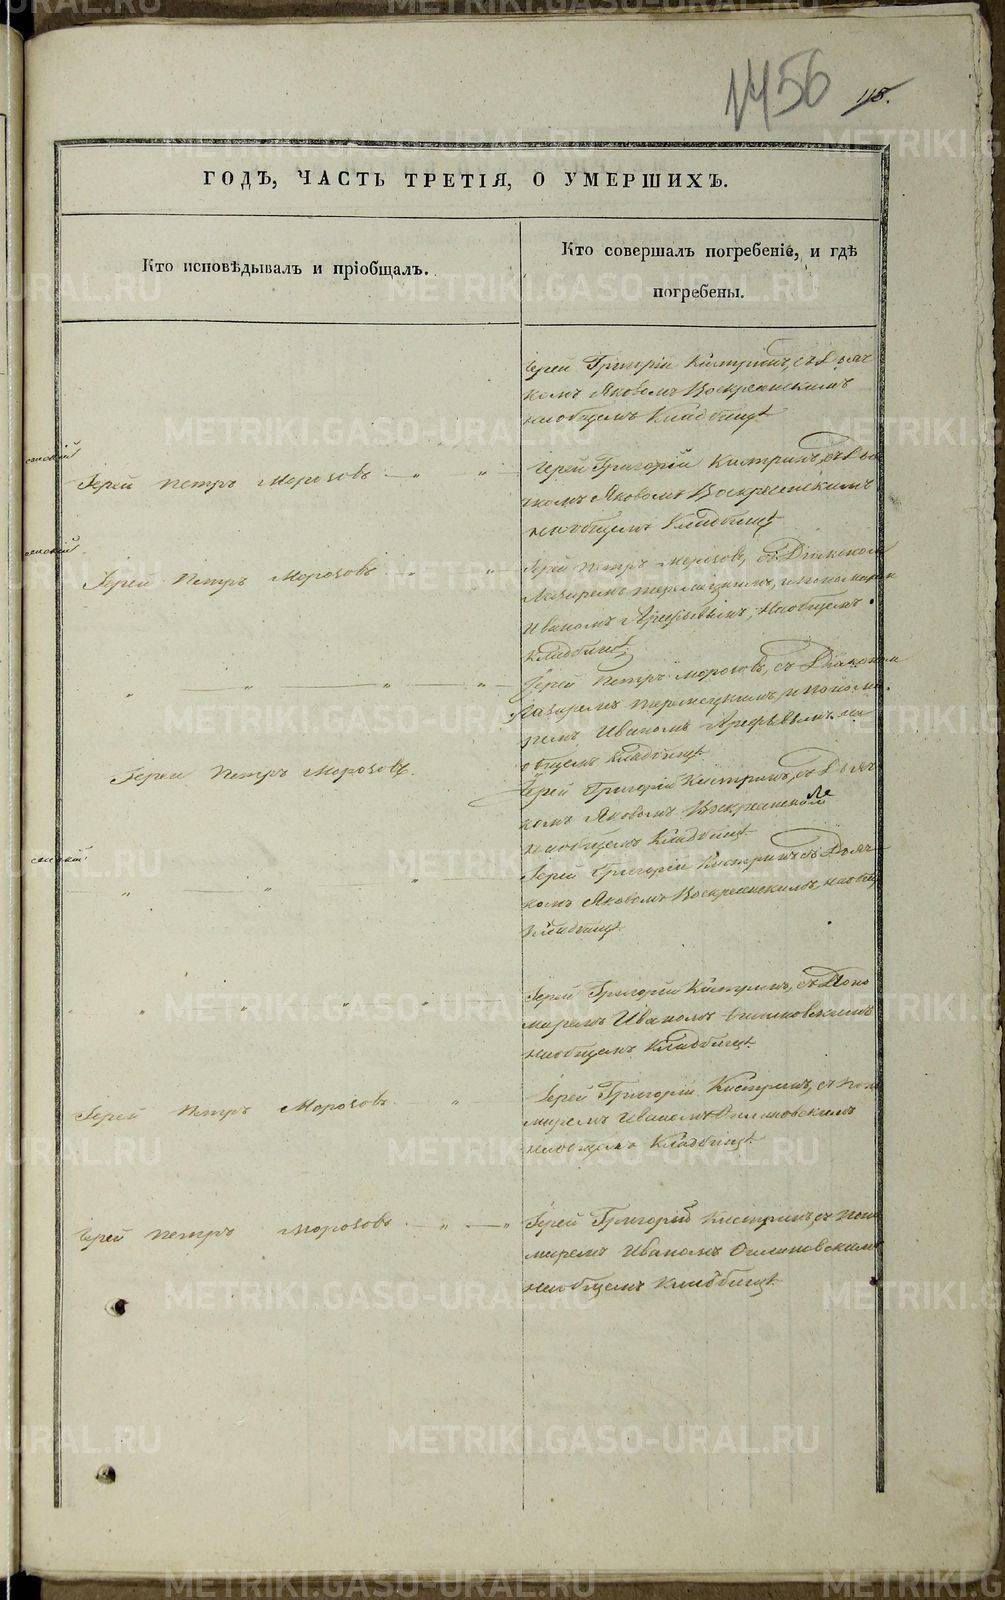 1456 115.
ГОДЪ, ЧАСТЬ ТРЕТІЯ, О УМЕРШИХЪ.
Кто исповѣдывалъ и пріобщалъ.
Кто совершалъ погребеніе, и гдѣ
погребены.
Іерей Григорій Кистринъ, съ Дьяч
комъ Яковомъ Воскресенскимъ
на общемъ Кладбищѣ
Іерей Петръ Морозовъ — „ „
Іерей Григорій Кистринъ, съ Дья
чкомъ Яковомъ Воскресенскимъ
на общемъ Кладбищѣ
Іерей Петръ Морозовъ „ „
Іерей Петръ Морозовъ, съ Діакономъ
Лазаремъ и пономаремъ
Иваномъ Арефьевымъ, на общемъ
Кладбищѣ
„ — „ — „ — „
Іерей Петръ Морозовъ, съ Діакономъ
Лазаремъ и понома
ремъ Иваномъ Арефьевымъ на
общемъ кладбищѣ
Іерей Петръ Морозовъ.
Іерей Григорій Кистринъ, съ Дьяч
комъ Яковомъ Воскресенским
на общемъ Кладбищѣ
„ „ „
Іерей Григорій Кистринъ съ Дьяч
комъ Яковомъ Воскресенскимъ, на общ
Кладбищѣ
„ „ „ „ „
Іерей Григорій Кистринъ, съ Поно
маремъ Иваномъ
на общемъ Кладбищѣ
Іерей Петръ Морозовъ „
Іерей Григорій Кистринъ, съ поно
маремъ Иваномъ
на общемъ Кладбищѣ
Іерей Петръ Морозовъ — „ — „
Іерей Григорій Кистринъ съ поно
маремъ Иваномъ
на общемъ Кладбищѣ
METRIKI.GASO-URAL.RU